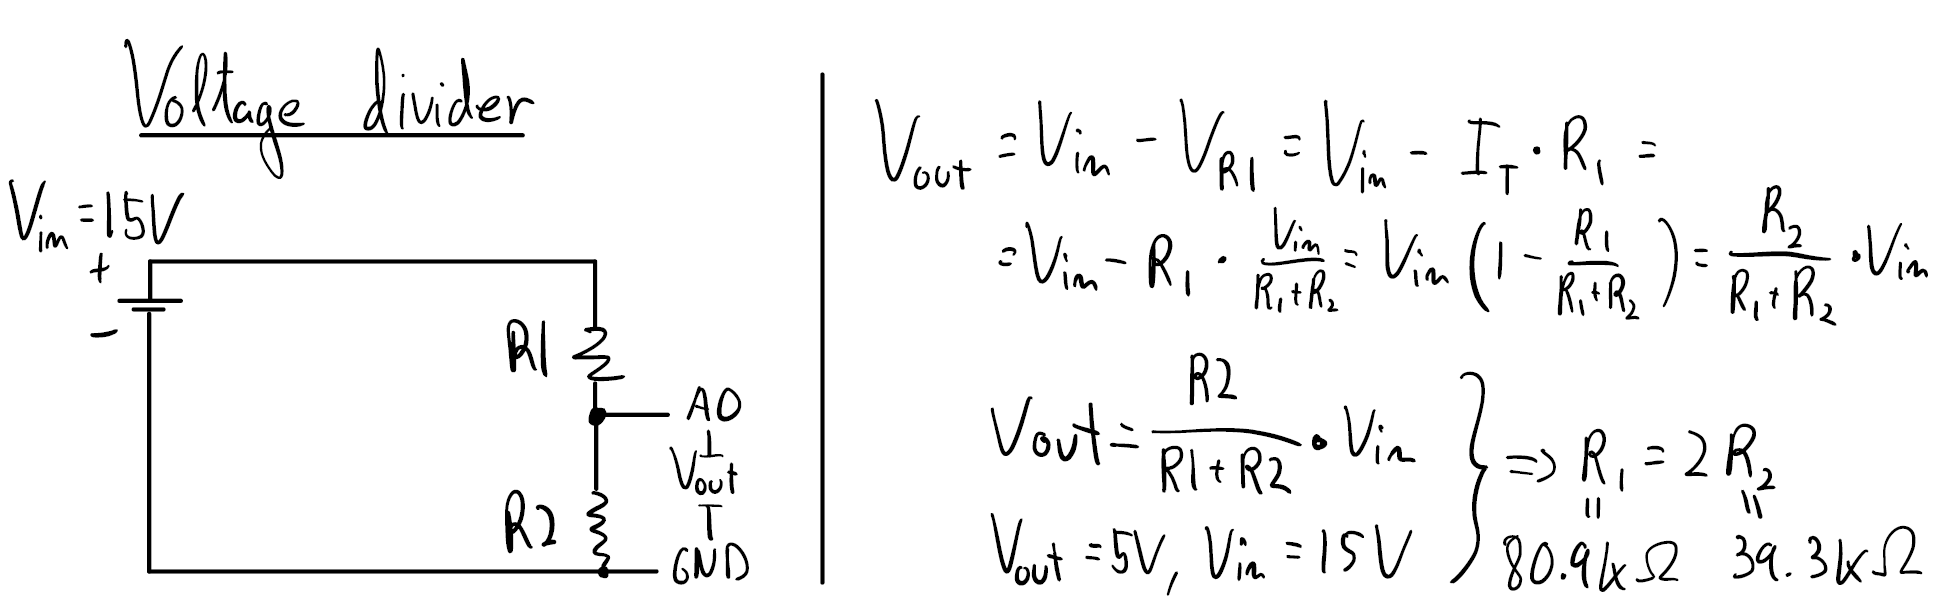 Voltage divider
Vin = 15V
+
-
R1
A0
Vout
R2
GND
Vout = Vin - VR1 = Vin - IT · R1 =
= Vin - R1 · Vin/(R1+R2) = Vin (1 - R1/(R1+R2)) = R2/(R1+R2) · Vin
Vout = R2/(R1+R2) · Vin
Vout = 5V, Vin = 15V
} => R1 = 2 R2
= =
80.9kΩ 39.3kΩ